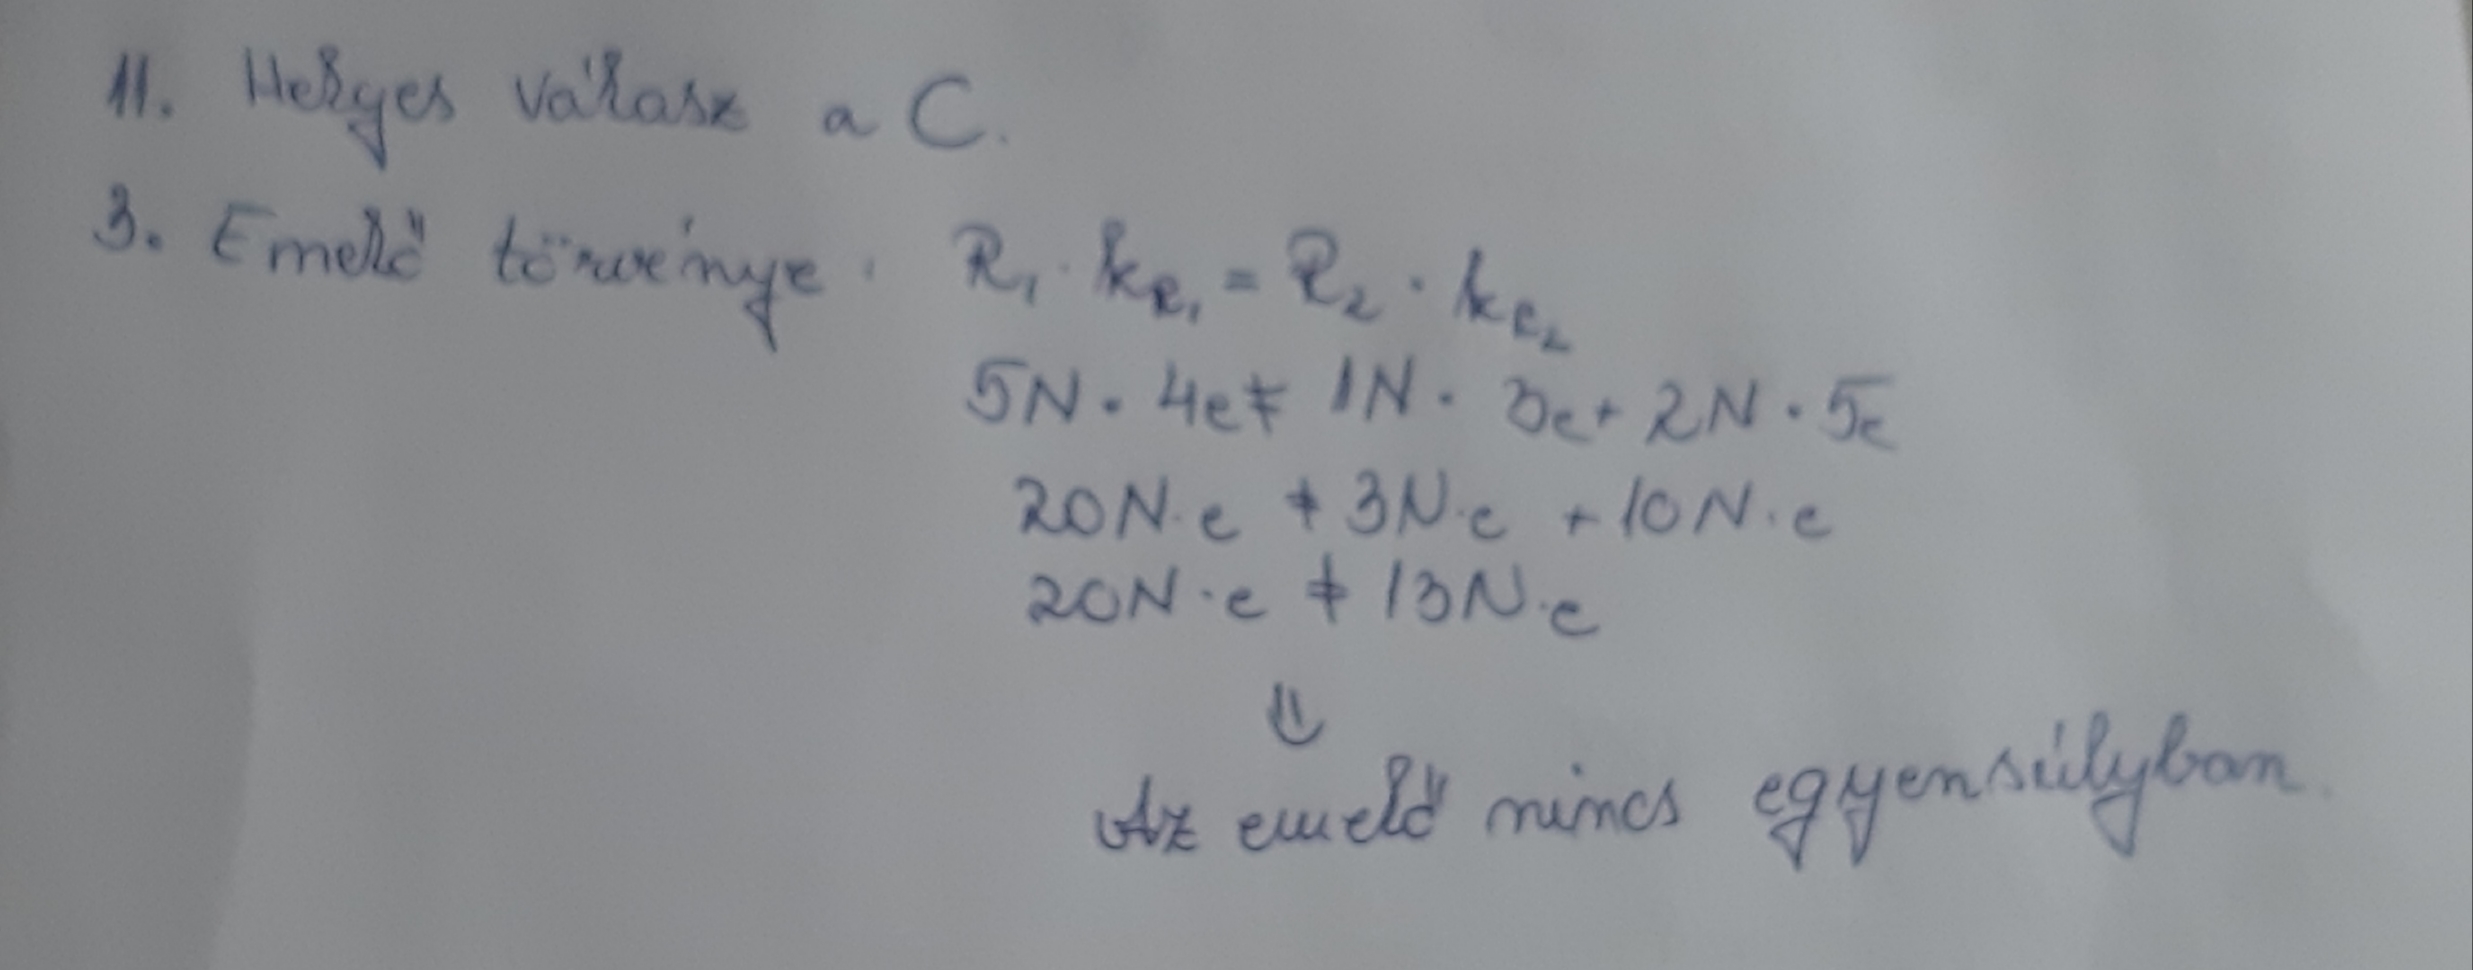 11. Helyes válasz a C.
3. Emelő törvénye: R₁ · k_R₁ = R₂ · k_R₂
5N · 4e ≠ 1N · 3e + 2N · 5e
20N·e ≠ 3N·e + 10N·e
20N·e ≠ 13N·e
⇓
Az emelő nincs egyensúlyban.